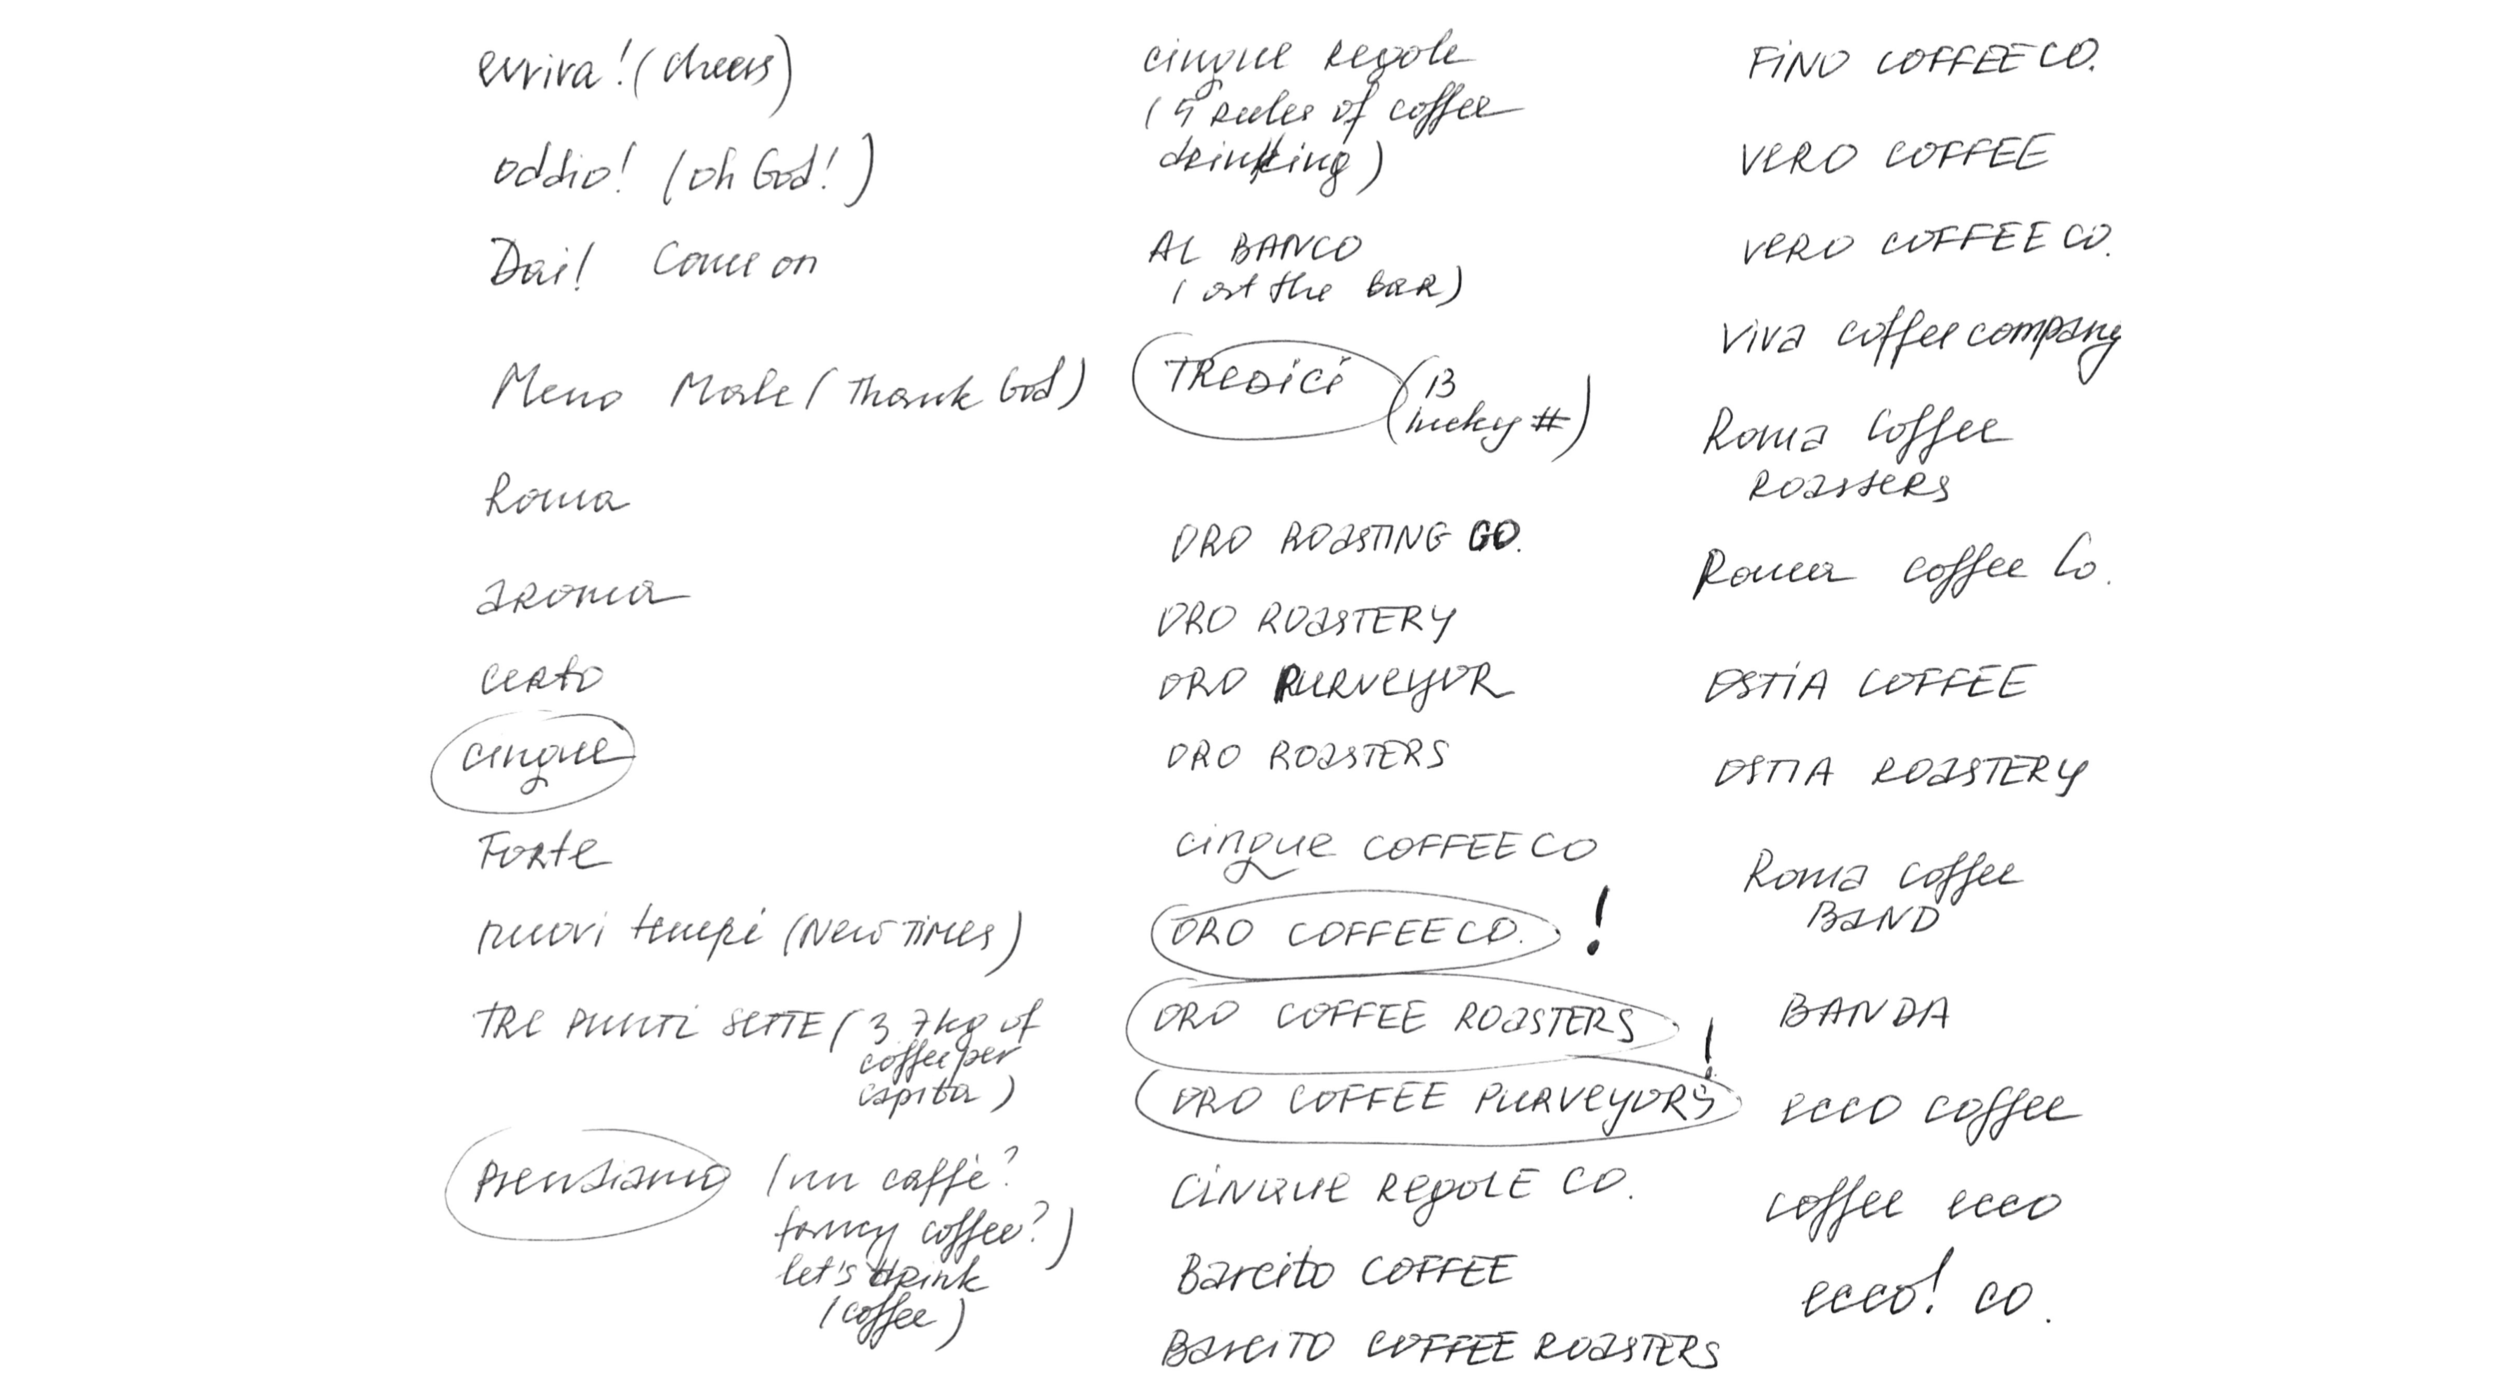 evviva! (cheers)
oddio! (oh God!)
Dai! Come on
Meno Male (Thank God)
Roma
aroma
certo
cinque
Forte
nuovi tempi (New Times)
TRE PUNTI SETTE (3,7kg of
coffee per
capita)
prendiamo (un caffè?
fancy coffee?)
let's drink
(coffee)
cinque regole
(5 rules of coffee
drinking)
AL BANCO
(at the bar)
TREDICI (13
lucky #)
ORO ROASTING CO.
ORO ROASTERY
ORO PURVEYOR
ORO ROASTERS
cinque COFFEE CO
ORO COFFEE CO. !
ORO COFFEE ROASTERS
ORO COFFEE PURVEYORS!
CINQUE REGOLE CO.
Barcito COFFEE
BarciTO COFFEE ROASTERS
FINO COFFEE CO.
VERO COFFEE
VERO COFFEE CO.
Viva coffee company
Roma Coffee
Roasters
Roma coffee Co.
OSTIA COFFEE
OSTIA ROASTERY
Roma coffee
BAND
BANDA
ecco coffee
coffee ecco
ecco! co.